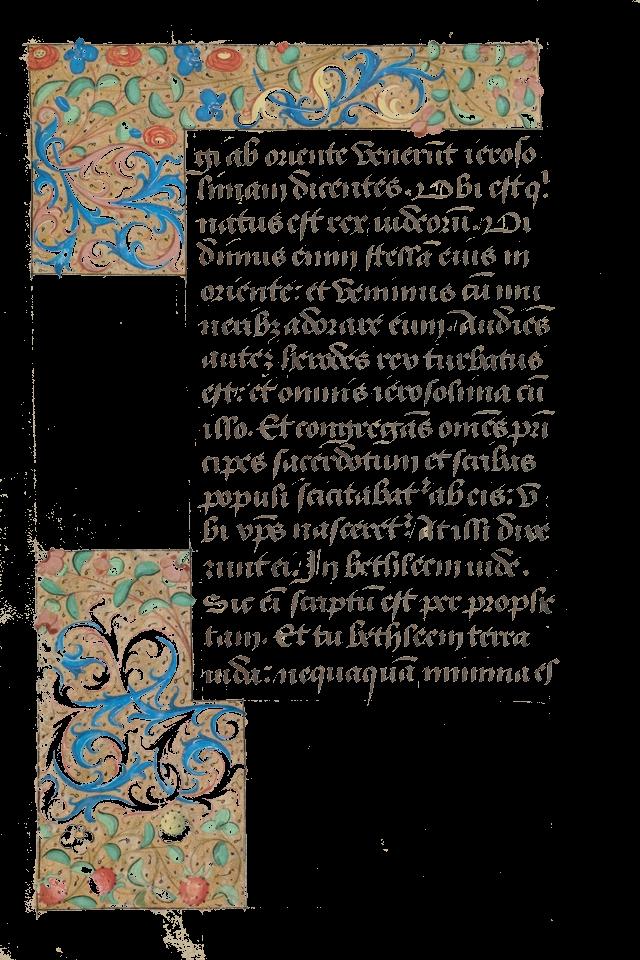 gi ab oriente venerūt ieroso
limam dicentes. Vbi est q'
natus est rex iudeorū. Vi
dimus enim stellā eius in
oriente: et venimus cū mu
neribꝫ adorare eum. Audiēs
auteꝫ herodes rex turbatus
est: et omnis ierosolima cū
illo. Et congregās om̄es prī
cipes sacerdotum et scribas
populi scicitabat᷑ ab eis: v
bi xp̄s nasceret᷑. At illi dixe
runt ei. In bethleem iude.
Sic ei̅ scriptū est per prophe
tam. Et tu bethleem terra
iuda: nequaquā minima es